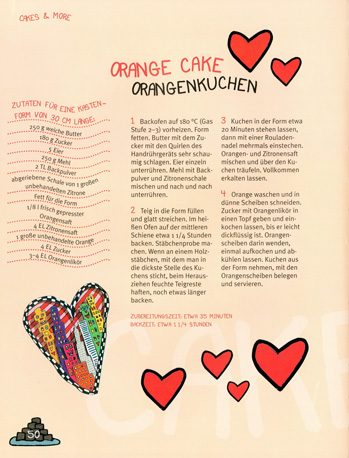 CAKES & MORE
ORANGE CAKE
ORANGENKUCHEN
ZUTATEN FÜR EINE KASTEN-
FORM VON 30 CM LÄNGE:
250 g weiche Butter
180 g Zucker
5 Eier
250 g Mehl
2 TL Backpulver
abgeriebene Schale von 1 großen
unbehandelten Zitrone
Fett für die Form
1/8 l frisch gepresster
Orangensaft
4 EL Zitronensaft
1 große unbehandelte Orange
4 EL Zucker
3–4 EL Orangenlikör
1 Backofen auf 180 °C (Gas
Stufe 2–3) vorheizen. Form
fetten. Butter mit dem Zu-
cker mit den Quirlen des
Handrührgeräts sehr schau-
mig schlagen. Eier einzeln
unterrühren. Mehl mit Back-
pulver und Zitronenschale
mischen und nach und nach
unterrühren.
2 Teig in die Form füllen
und glatt streichen. Im hei-
ßen Ofen auf der mittleren
Schiene etwa 1 1/4 Stunden
backen. Stäbchenprobe ma-
chen. Wenn an einem Holz-
stäbchen, mit dem man in
die dickste Stelle des Ku-
chens sticht, beim Heraus-
ziehen feuchte Teigreste
haften, noch etwas länger
backen.
3 Kuchen in der Form etwa
20 Minuten stehen lassen,
dann mit einer Rouladen-
nadel mehrmals einstechen.
Orangen- und Zitronensaft
mischen und über den Ku-
chen träufeln. Vollkommen
erkalten lassen.
4 Orange waschen und in
dünne Scheiben schneiden.
Zucker mit Orangenlikör in
einen Topf geben und ein-
kochen lassen, bis er leicht
dickflüssig ist. Orangen-
scheiben darin wenden,
einmal aufkochen und ab-
kühlen lassen. Kuchen aus
der Form nehmen, mit den
Orangenscheiben belegen
und servieren.
ZUBEREITUNGSZEIT: ETWA 35 MINUTEN
BACKZEIT: ETWA 1 1/4 STUNDEN
CAKE
50